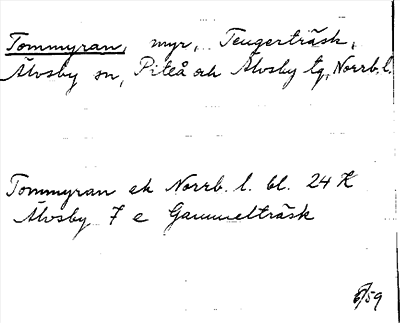 Tommyran, myr, Teugerträsk,
Älvsby sn, Piteå och Älvsby tg, Norrb. l.
Tommyran ek Norrb. l. bl. 24 K
Älvsby 7 e Gammelträsk
/59